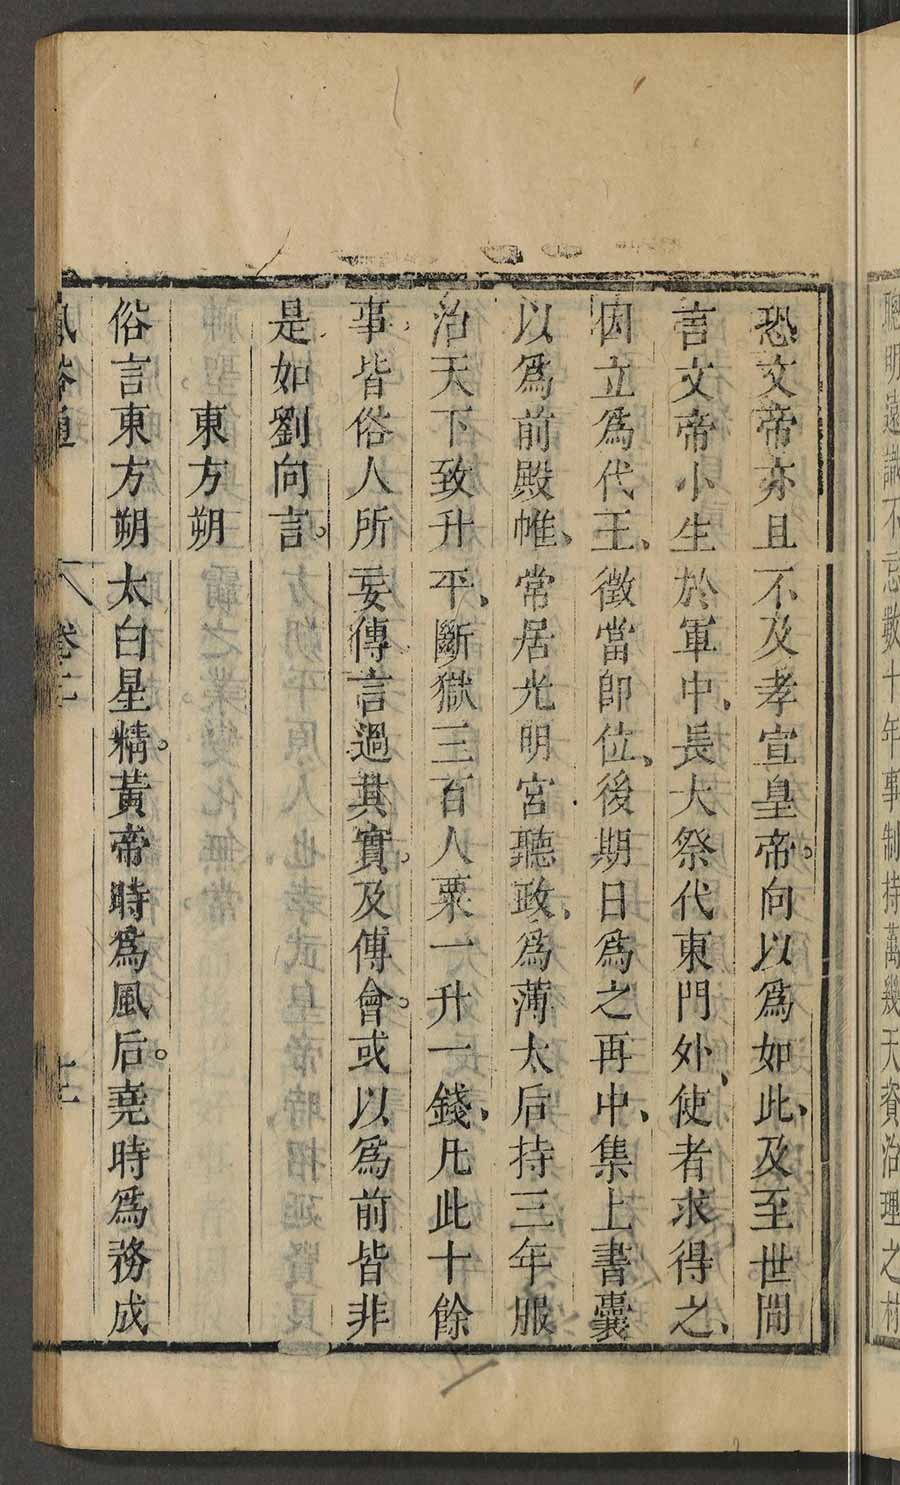 聰明遠識不忘數十年事制持萬幾天資治理之材
恐文帝亦且不及孝宣皇帝。向以爲如此、及至世間
言文帝小生於軍中、長大祭代東門外、使者求得之、
因立爲代王、徵當即位、後期日爲之再中、集上書囊
以爲前殿帷、常居光明宮聽政、爲薄太后持三年服
治天下致升平、斷獄三百人粟一升一錢、凡此十餘
事皆俗人所妄傳言過其實。及傅會。或以爲前皆非
是如劉向言。
東方朔
俗言東方朔太白星精。黃帝時爲風后。堯時爲務成
風俗通 卷二 十二